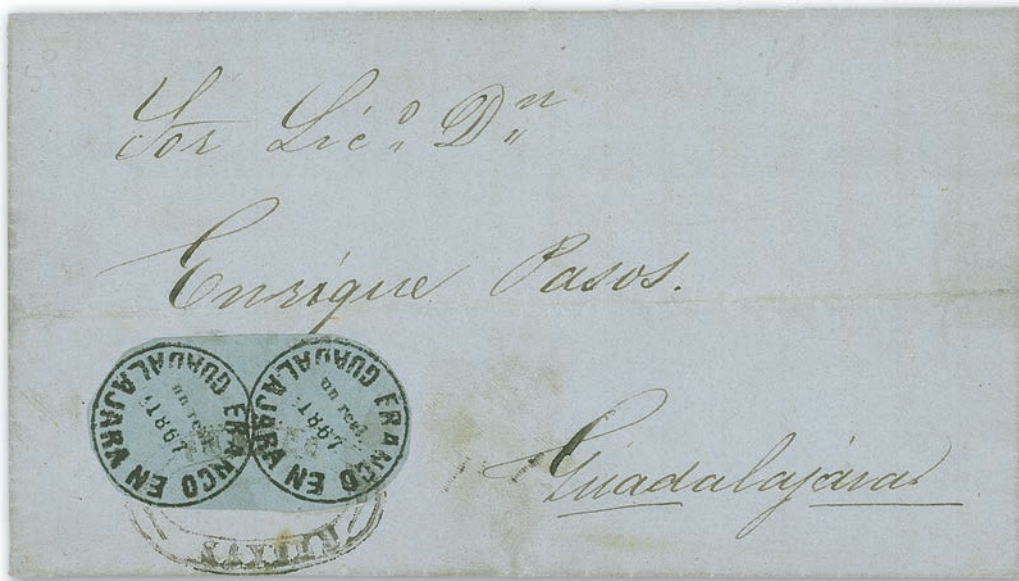 Sor Lic.º Dⁿ
Enrique Pasos.
Guadalajara
FRANCO EN GUADALAJARA
un real
1867
FRANCO EN GUADALAJARA
un real
1867